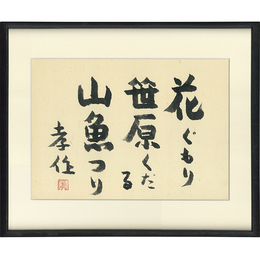 花ぐもり
笹原くだる
山魚つり
孝作